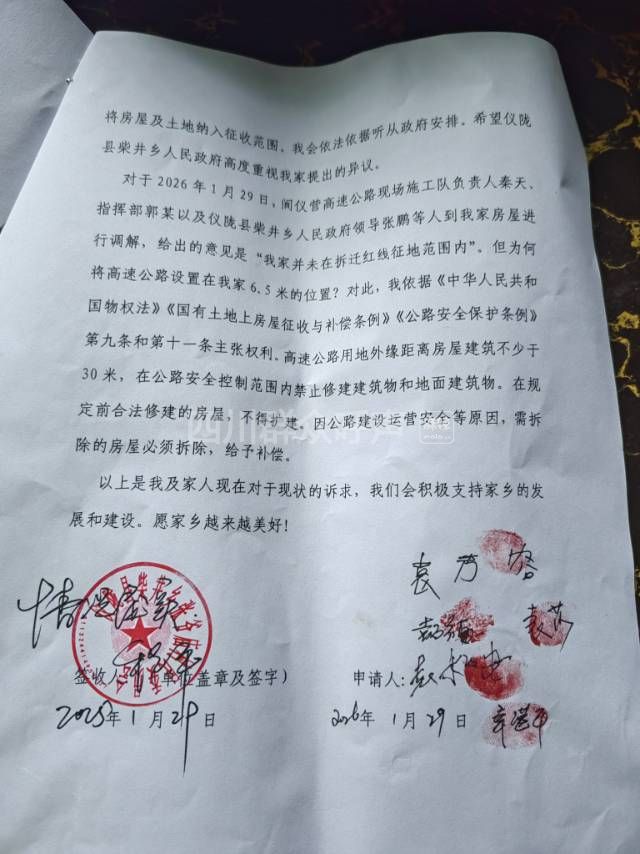 将房屋及土地纳入征收范围、我会依法依据听从政府安排。希望仪陇
县柴井乡人民政府高度重视我家提出的异议。
对于 2026 年 1 月 29 日，阆仪营高速公路现场施工队负责人秦天、
指挥部郭某以及仪陇县柴井乡人民政府领导张鹏等人到我家房屋进
行调解，给出的意见是“我家并未在拆迁红线征地范围内”。但为何
将高速公路设置在我家 6.5 米的位置？对此，我依据《中华人民共和
国物权法》《国有土地上房屋征收与补偿条例》《公路安全保护条例》
第九条和第十一条主张权利、高速公路用地外缘距离房屋建筑不少于
30 米，在公路安全控制范围内禁止修建建筑物和地面建筑物。在规
定前合法修建的房屋，不得扩建，因公路建设运营安全等原因，需拆
除的房屋必须拆除，给予补偿。
四川群众呼声
以上是我及家人现在对于现状的诉求，我们会积极支持家乡的发
展和建设。愿家乡越来越美好！
情况属实
签收人 单位盖章及签字）
申请人：
2025年 1 月 29 日
2026年 1 月 29 日